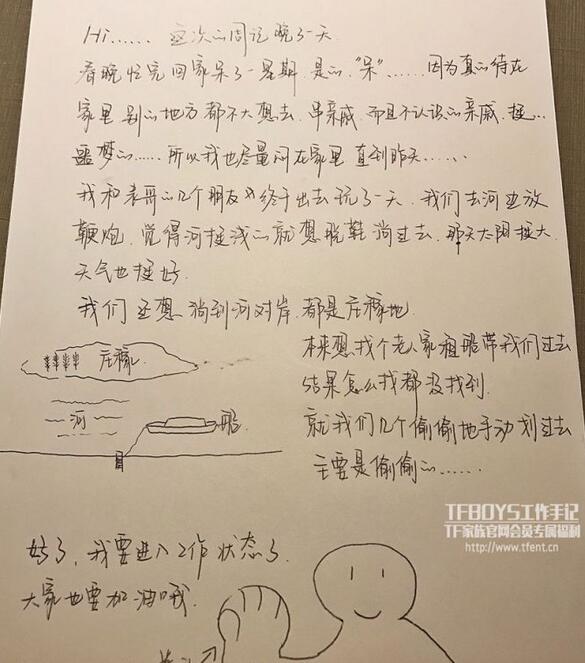 Hi...... 这次的周记晚了一天
春晚忙完回家呆了一星期.是的."呆"...... 因为真的待在
家里.别的地方都不大想去.串亲戚.而且不认识的亲戚.挺...
噩梦的...... 所以我也尽量闷在家里.直到昨天......
我和表哥的几个朋友终于出去玩了一天.我们去河边放
鞭炮.觉得河挺浅的就想脱鞋淌过去.那天太阳挺大.
天气也挺好.
我们还想淌到河对岸.都是庄稼地
本来想找个老人家租船带我们过去
结果怎么找都没找到.
就我们几个偷偷地手动划过去
主要是偷偷的......
庄稼
河
船
好了,我要进入工作状态了.
大家也要加油哦.
TFBOYS工作手记
TF家族官网会员专属福利
http://www.tfent.cn